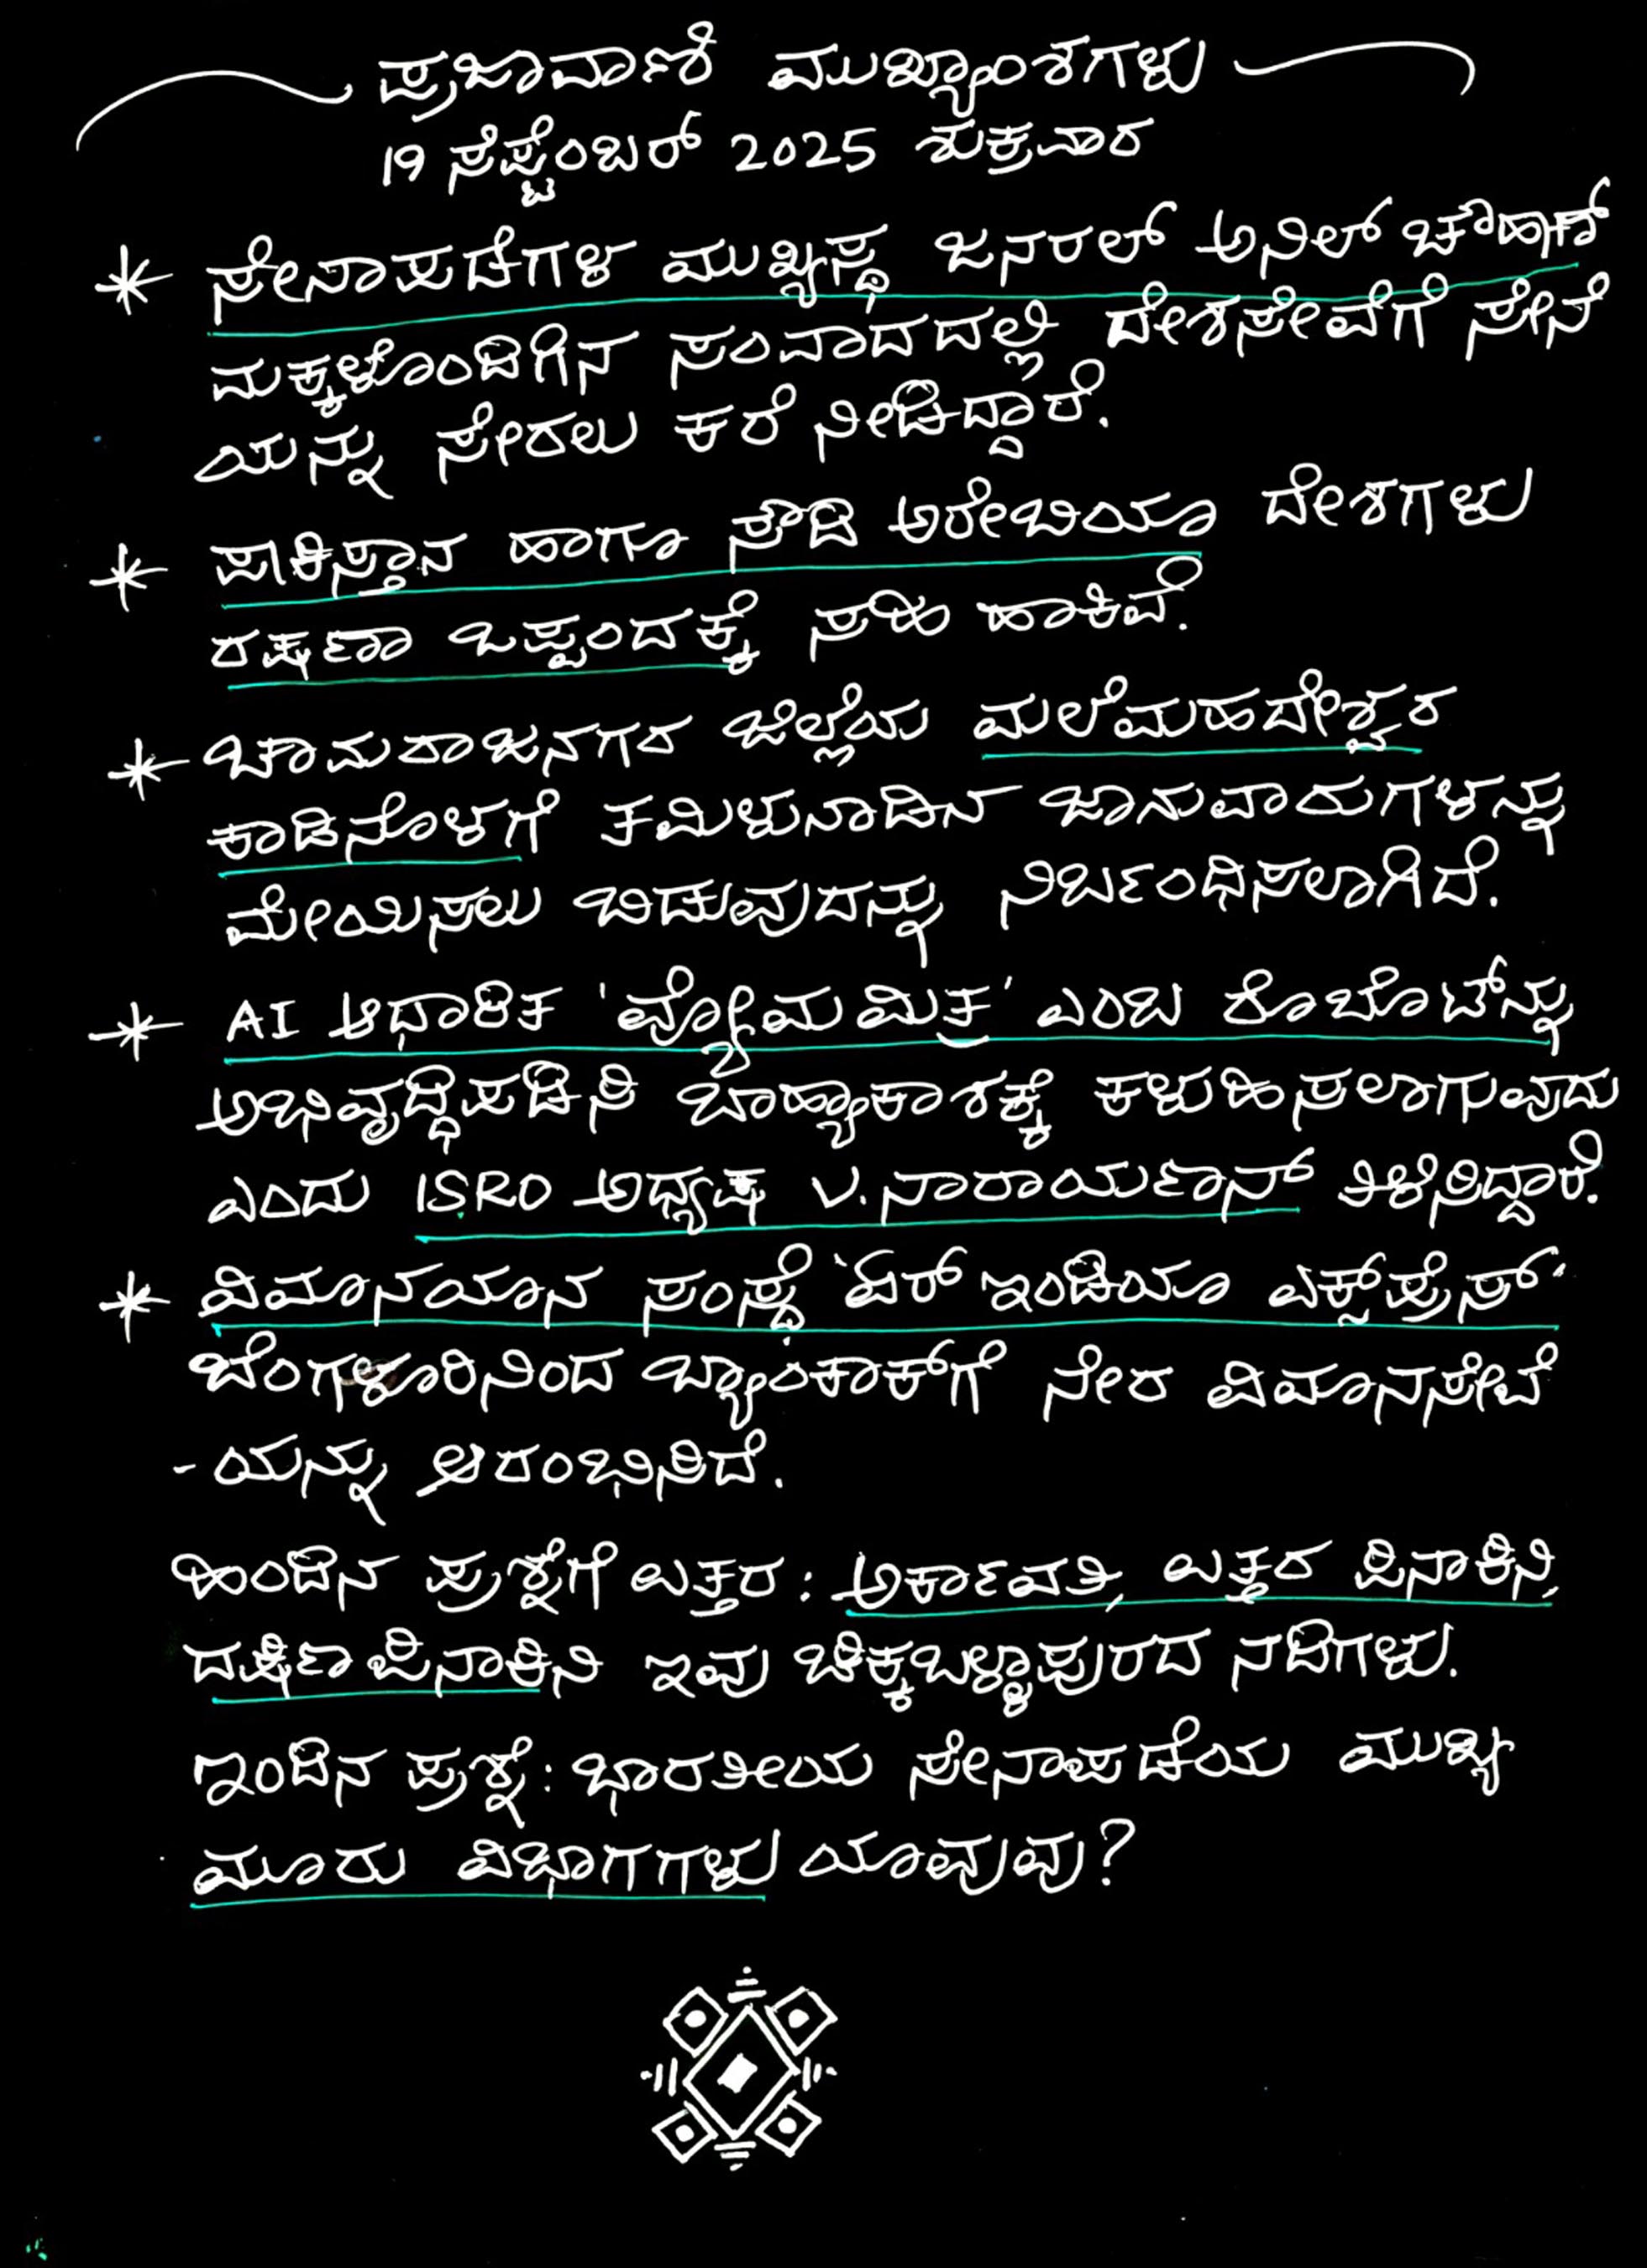 ಪ್ರಜಾವಾಣಿ ಮುಖ್ಯಾಂಶಗಳು
19 ಸೆಪ್ಟೆಂಬರ್ 2025 ಶುಕ್ರವಾರ
* ಸೇನಾಪಡೆಗಳ ಮುಖ್ಯಸ್ಥ ಜನರಲ್ ಅನಿಲ್ ಚೌಹಾಣ್
ಮಕ್ಕಳೊಂದಿಗಿನ ಸಂವಾದದಲ್ಲಿ ದೇಶಸೇವೆಗೆ ಸೇನೆ
ಯನ್ನು ಸೇರಲು ಕರೆ ನೀಡಿದ್ದಾರೆ.
* ಪಾಕಿಸ್ತಾನ ಹಾಗೂ ಸೌದಿ ಅರೇಬಿಯಾ ದೇಶಗಳು
ರಕ್ಷಣಾ ಒಪ್ಪಂದಕ್ಕೆ ಸಹಿ ಹಾಕಿವೆ.
* ಚಾಮರಾಜನಗರ ಜಿಲ್ಲೆಯ ಮಲೆಮಹದೇಶ್ವರ
ಕಾಡಿನೊಳಗೆ ತಮಿಳುನಾಡಿನ ಜಾನುವಾರುಗಳನ್ನು
ಮೇಯಿಸಲು ಬಿಡುವುದನ್ನು ನಿರ್ಬಂಧಿಸಲಾಗಿದೆ.
* AI ಆಧಾರಿತ 'ವ್ಯೋಮಮಿತ್ರ' ಎಂಬ ರೊಬೊಟ್‌ನ್ನು
ಅಭಿವೃದ್ಧಿಪಡಿಸಿ ಬಾಹ್ಯಾಕಾಶಕ್ಕೆ ಕಳುಹಿಸಲಾಗುವುದು
ಎಂದು ISRO ಅಧ್ಯಕ್ಷ V.ನಾರಾಯಣನ್ ತಿಳಿಸಿದ್ದಾರೆ.
* ವಿಮಾನಯಾನ ಸಂಸ್ಥೆ 'ಏರ್ ಇಂಡಿಯಾ ಎಕ್ಸ್‌ಪ್ರೆಸ್'
ಬೆಂಗಳೂರಿನಿಂದ ಬ್ಯಾಂಕಾಕ್‌ಗೆ ನೇರ ವಿಮಾನಸೇವೆ
-ಯನ್ನು ಆರಂಭಿಸಿದೆ.
ಹಿಂದಿನ ಪ್ರಶ್ನೆಗೆ ಉತ್ತರ: ಅರ್ಕಾವತಿ, ಉತ್ತರ ಪಿನಾಕಿನಿ,
ದಕ್ಷಿಣ ಪಿನಾಕಿನಿ ಇವು ಚಿಕ್ಕಬಳ್ಳಾಪುರದ ನದಿಗಳು.
ಇಂದಿನ ಪ್ರಶ್ನೆ: ಭಾರತೀಯ ಸೇನಾಪಡೆಯ ಮುಖ್ಯ
ಮೂರು ವಿಭಾಗಗಳು ಯಾವುವು?